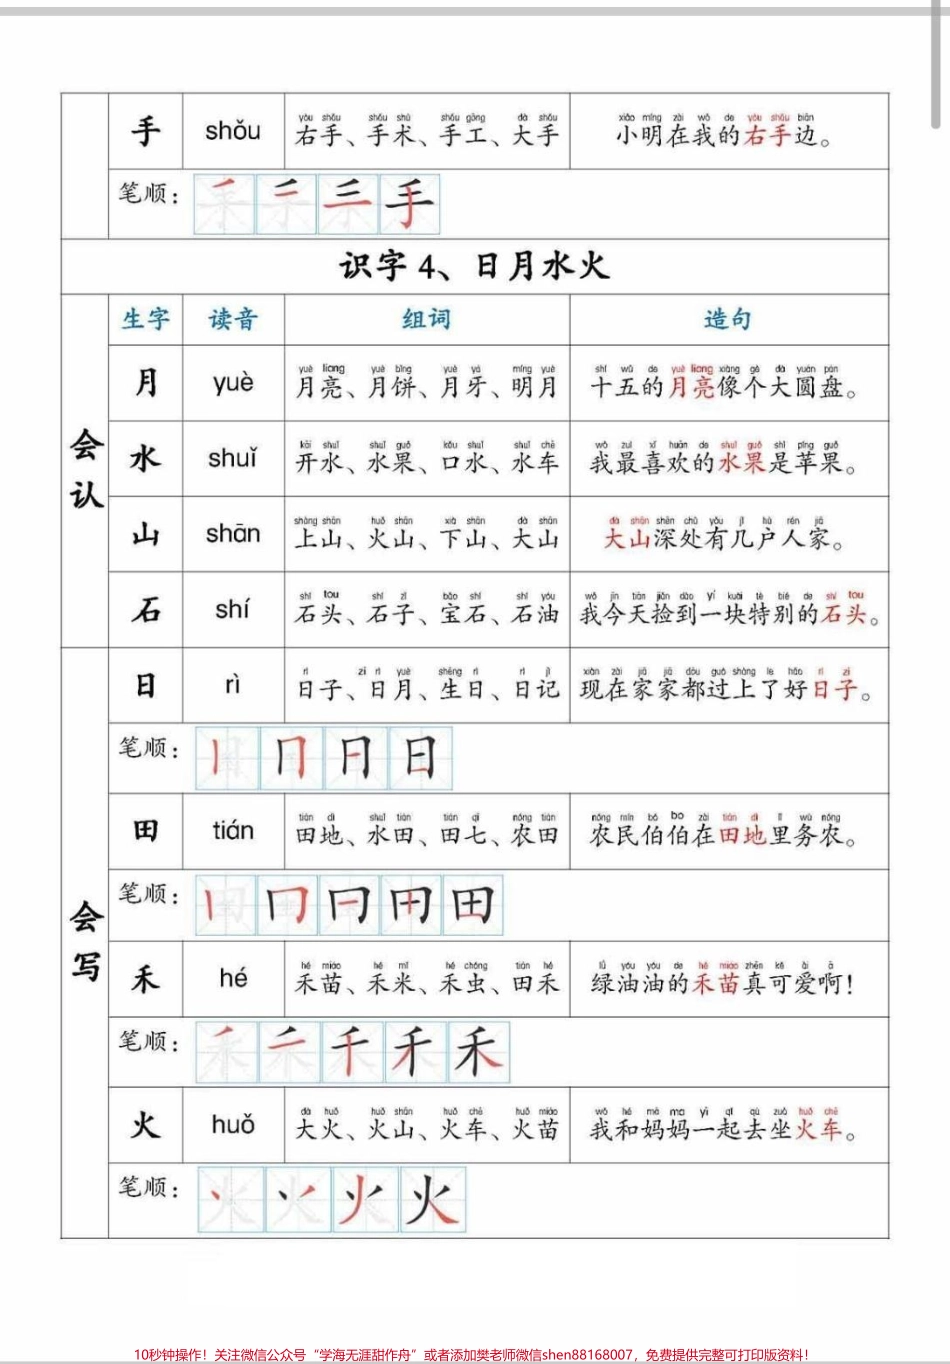 yòu shǒu shǒu shù shǒu gōng dà shǒu xiǎo míng zài wǒ de yòu shǒu biān
手 shǒu 右手、手术、手工、大手 小明在我的右手边。
笔顺：
识字 4、日月水火
生字 读音 组词 造句
会认
yuè liang yuè bǐng yuè yá míng yuè shí wǔ de yuè liang xiàng gè dà yuán pán
月 yuè 月亮、月饼、月牙、明月 十五的月亮像个大圆盘。
kāi shuǐ shuǐ guǒ kǒu shuǐ shuǐ chē wǒ zuì xǐ huān de shuǐ guǒ shì píng guǒ
水 shuǐ 开水、水果、口水、水车 我最喜欢的水果是苹果。
shàng shān huǒ shān xià shān dà shān dà shān shēn chù yǒu jǐ hù rén jiā
山 shān 上山、火山、下山、大山 大山深处有几户人家。
shí tou shí zǐ bǎo shí shí yóu wǒ jīn tiān jiǎn dào yí kuài tè bié de shí tou
石 shí 石头、石子、宝石、石油 我今天捡到一块特别的石头。
会写
rì zǐ rì yuè shēng rì rì jì xiàn zài jiā jiā dōu guò shàng le hǎo rì zǐ
日 rì 日子、日月、生日、日记 现在家家都过上了好日子。
笔顺：
tián dì shuǐ tián tián qī nóng tián nóng mín bó bo zài tián dì lǐ wù nóng
田 tián 田地、水田、田七、农田 农民伯伯在田地里务农。
笔顺：
hé miáo hé mǐ hé chóng tián hé lǜ yóu yóu de hé miáo zhēn kě ài ā
禾 hé 禾苗、禾米、禾虫、田禾 绿油油的禾苗真可爱啊！
笔顺：
dà huǒ huǒ shān huǒ chē huǒ miáo wǒ hé mā ma yì qǐ qù zuò huǒ chē
火 huǒ 大火、火山、火车、火苗 我和妈妈一起去坐火车。
笔顺：
10秒钟操作！关注微信公众号“学海无涯甜作舟”或者添加樊老师微信shen88168007，免费提供完整可打印版资料！